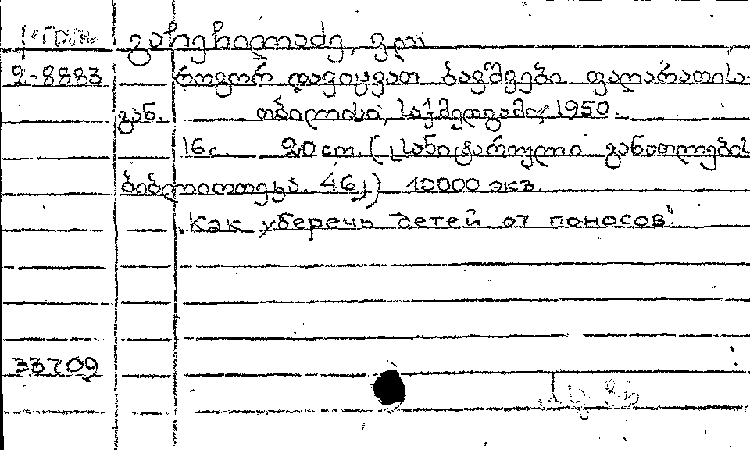 გაჩეჩილაძე, ვლ.
2-8883 როგორ დავიცვათ ბავშვები ფაღარათისა-
გან. თბილისი, საქმედგამი, 1950.
16с. 20 cm. (სანიტარული განათლების
ბიბლიოთეკა. 46) 10000 ეკზ.
"Как уберечь детей от поносов"
33709